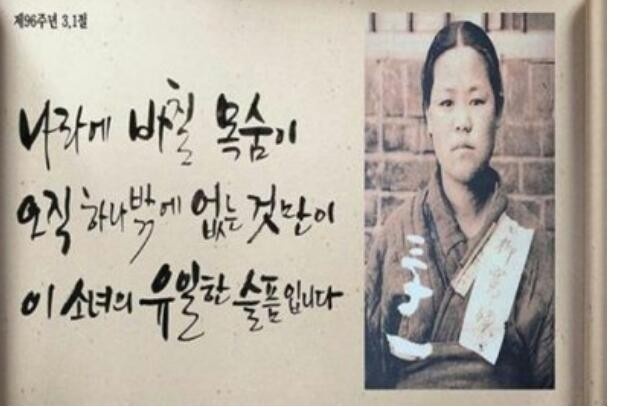 제96주년 3.1절
나라에 바칠 목숨이
오직 하나밖에 없는 것만이
이 소녀의 유일한 슬픔입니다